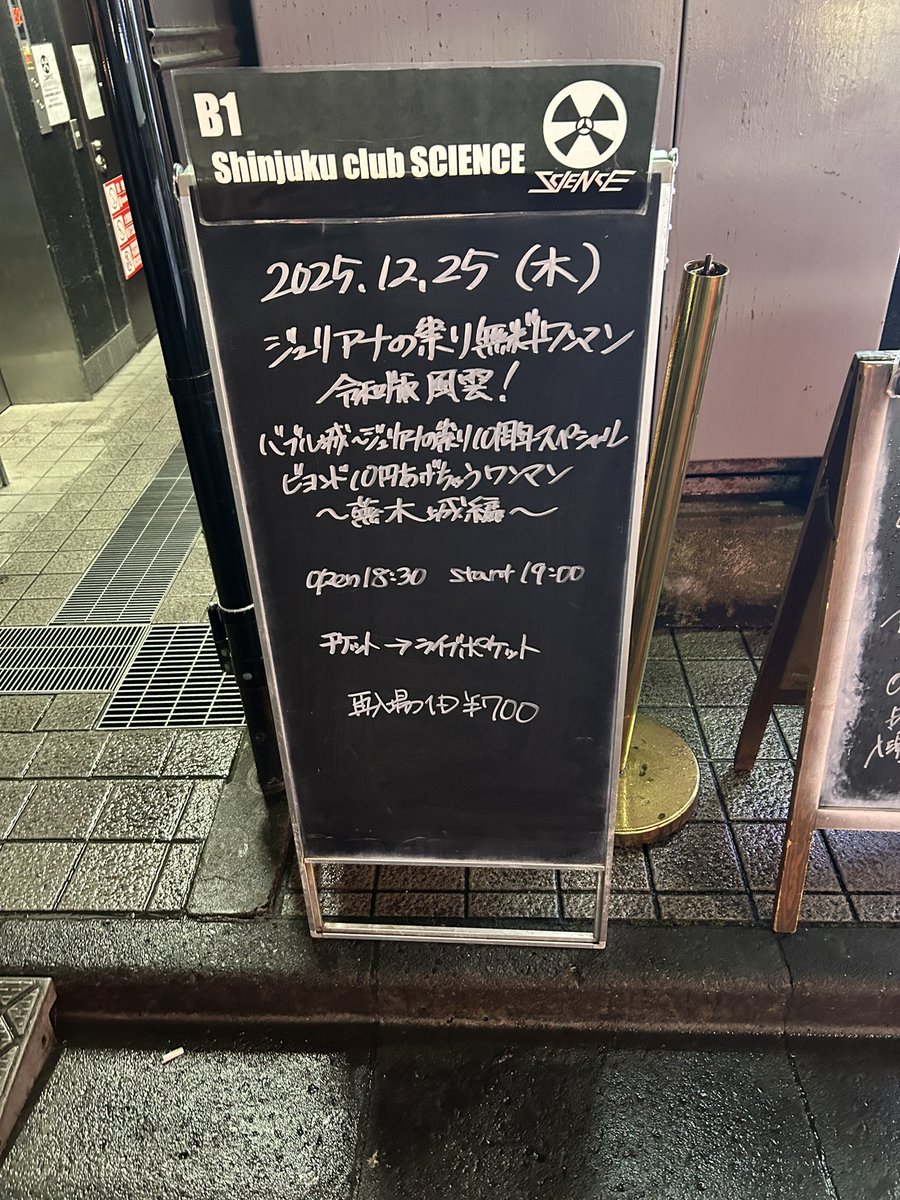 B1
Shinjuku club SCIENCE
SCIENCE
2025.12.25 (木)
ジュリアナの祟り無料ワンマン
令和版 風雲!
バブル城〜ジュリアナの祟り10周年スペシャル
ビヨンド10円あげちゃうワンマン
〜藤木城編〜
open 18:30 start 19:00
チケット→ライブポケット
再入場1D ¥700